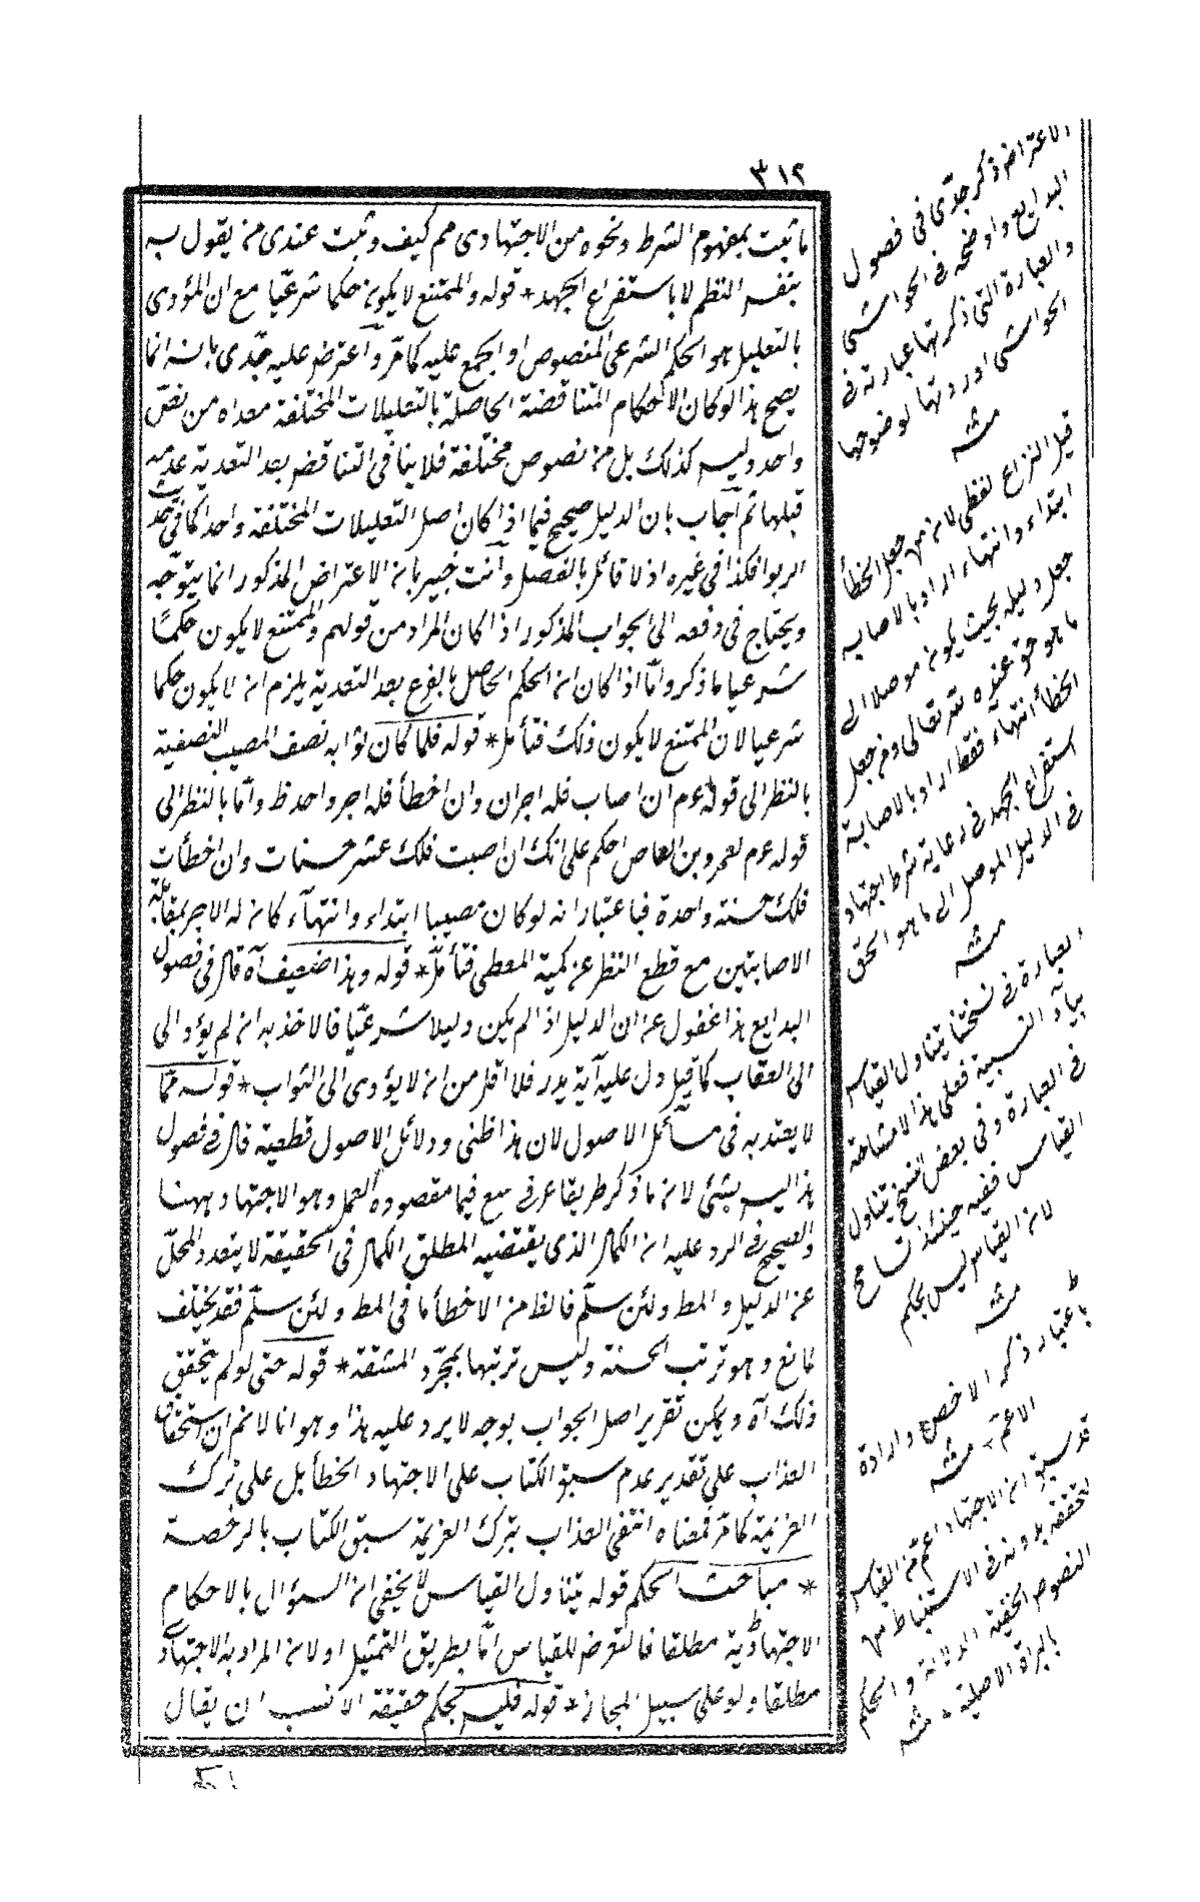 ٣١٢
ما ثبت بمفهوم الشرط ونحوه من الاجتهادى مم كيف وثبت عندى من يقول به
بنفس النظم لا باستفراغ الجهد * قوله والممتنع لا يكون حكما شرعيا مع ان المؤدى
بالتعليل هو الحكم الشرعى المنصوص او المجمع عليه كما مرّ واعترض عليه جدّى بانه انما
يصح هذا لو كان الاحكام المتناقضة الحاصلة بالتعليلات المختلفة معداه من نصّ
واحد وليس كذلك بل من نصوص مختلفة فلا ينافى التناقض بعد التعدية عدمه
قبلها ثم اجاب بان الدليل صحيح فيما اذا كان اصل التعليلات المختلفة واحدا كما فى حديث
الربوا فكذا فى غيره اذ لا قائل بالفصل وانت خبير بان الاعتراض المذكور انما يتوجه
ويحتاج فى دفعه الى الجواب المذكور اذا كان المراد من قولهم والممتنع لا يكون حكمًا
شرعيا ما ذكر وامّا اذا كان ان الحكم الحاصل بالفرع بعد التعدية يلزم ان لا يكون حكما
شرعيا لان الممتنع لا يكون ذلك فتأمل * قوله فلما كان ثوابه نصف المصيب التنصفية
بالنظر الى قوله عم ان اصاب فله اجران وان اخطأ فله اجر واحد ظ وامّا بالنظر الى
قوله عم لعمرو بن العاص احكم على انك ان اصبت فلك عشر حسنات وان اخطأت
فلك حسنة واحدة فباعتبار انه لو كان مصيبا ابتداء وانتهآء كان له الاجر بمقابلة
الاصابتين مع قطع النظر عن كمية المعطى فتأمّل * قوله وهذا ضعيف آه قال فى فصول
البدايع هذا غفول عن ان الدليل اذ الم يكن دليلا شرعيّا فالاخذ به ان لم يؤد الى
الى العقاب كما قيل دل عليه آية بدر فلا اقل من ان لا يؤدى الى الثواب * قوله ممّا
لا يعتد به فى مسآئل الاصول لان هذا ظنى ودلائل الاصول قطعية قال فى فصول
هذا ليس بشئ لان ما ذكر طريقا عرفى مع فيما مقصوده العمل وهو الاجتهاد وههنا
والصحيح فى الرد عليه ان الكمال الذى يقتضيه المطلق الكمال فى الحقيقة لا بتعدد المحلّ
عن الدليل والمط ولئن سلّم فالظ من الاخطأ ما فى المط ولئن سلّم فقد يختلف
لمانع وهو ترتب الحسنة وليس ترتبها بمجرّد المشقة * قوله حتى لو لم يتحقق
ذلك آه ويمكن تقرير اصل الجواب بوجه لا يرد عليه هذا وهو انا لا نم ان استحقاق
العذاب على تقدير عدم سبق الكتاب على الاجتهاد الخطأ بل على ترك
العزيمة كما مرّ فمعناه انتفى العذاب بترك العزيمة سبق الكتاب بالرخصة
* مباحث الحكم قوله يتناول القياس لا يخفى ان السؤال بالاحكام
الاجتهادية مطلقا فالتعرض للقياس امّا بطريق التمثيل او لان المراد به الاجتهاد
مطلقا ولو على سبيل المجاز * قوله فليس بحكم حقيقة الانسب ان يقال
الاعتراض ذكر جدّى فى فصول
البدايع واوضحه فى الحواشى
والعبارة التى ذكرتها عبارته فى
الحواشى اوردتها لوضوحها
منه
قيل النزاع لفظى لان من جعل الخطأ
ابتداء وانتهاء اراد بالاصابه
جعل دليله بحيث يكون موصلا الى
ما هو حق عنده تعالى ومن جعل
الخطأ انتهاء فقط اراد بالاصابة
استفراغ الجهد فى رعاية شرط اجتهاد
فى الدليل الموصل الى ما هو الحق
منه
العبارة فى نسختنا يتناول القياس
بياء النسبية فعلى هذا لا مشاحة
فى العبارة وفى بعض النسخ يتناول
القياس ففيه حينئذ تسامح
لان القياس ليس بحكم
منه
باعتبار ذكر الاخص وارادة
الاعمّ منه
قد سبق ان الاجتهاد اعمّ من القياس
لتحققه بدونه فى الاستنباط من
النصوص الخفية الدلالة والحكم
بالبراة الاصلية منه